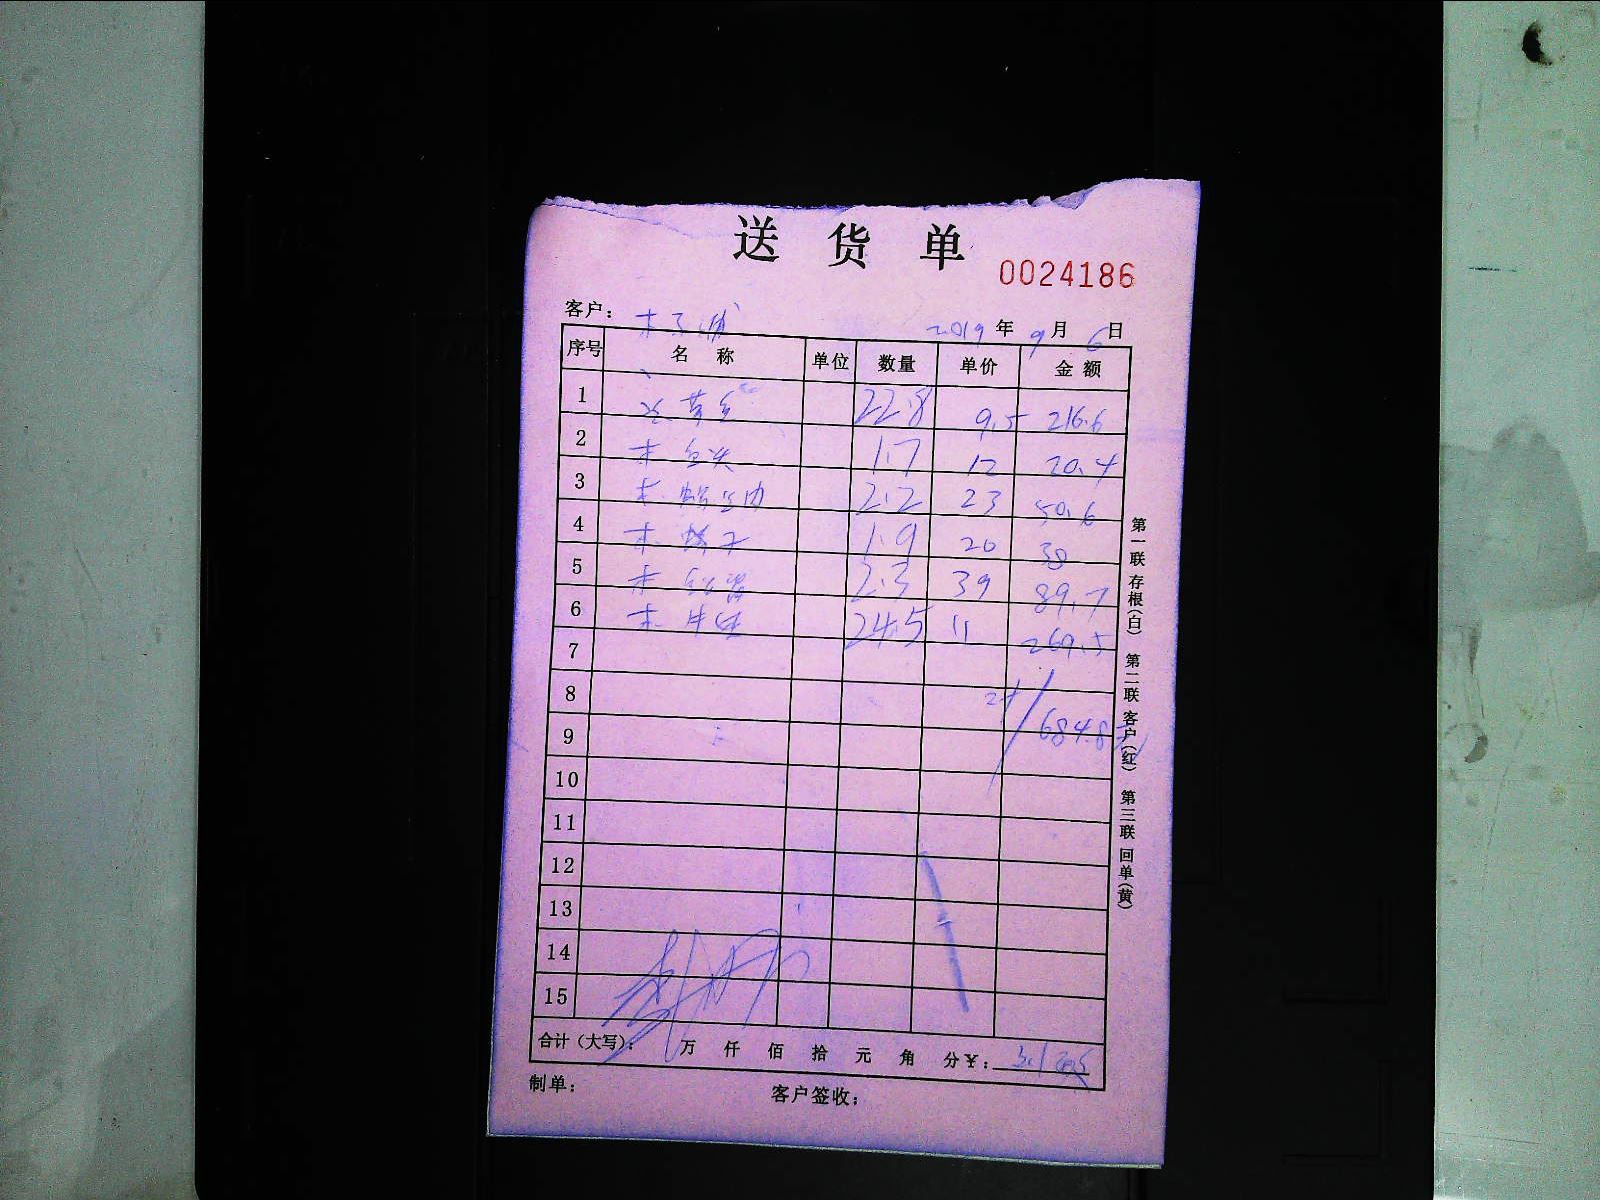 送 货 单
0024186
客户:
2019 年 9 月 6 日
序号 名 称 单位 数量 单价 金 额
1 22.8 9.5 216.6
2 1.7 12 20.4
3 2.2 23 50.6
4 1.9 20 38
5 2.3 39 89.7
6 24.5 11 269.5
7
8
684.8元
9
10
11
12
13
14
15
合计（大写）： 万 仟 佰 拾 元 角 分 ¥：
制单： 客户签收：
第一联 存根（白） 第二联 客户（红） 第三联 回单（黄）